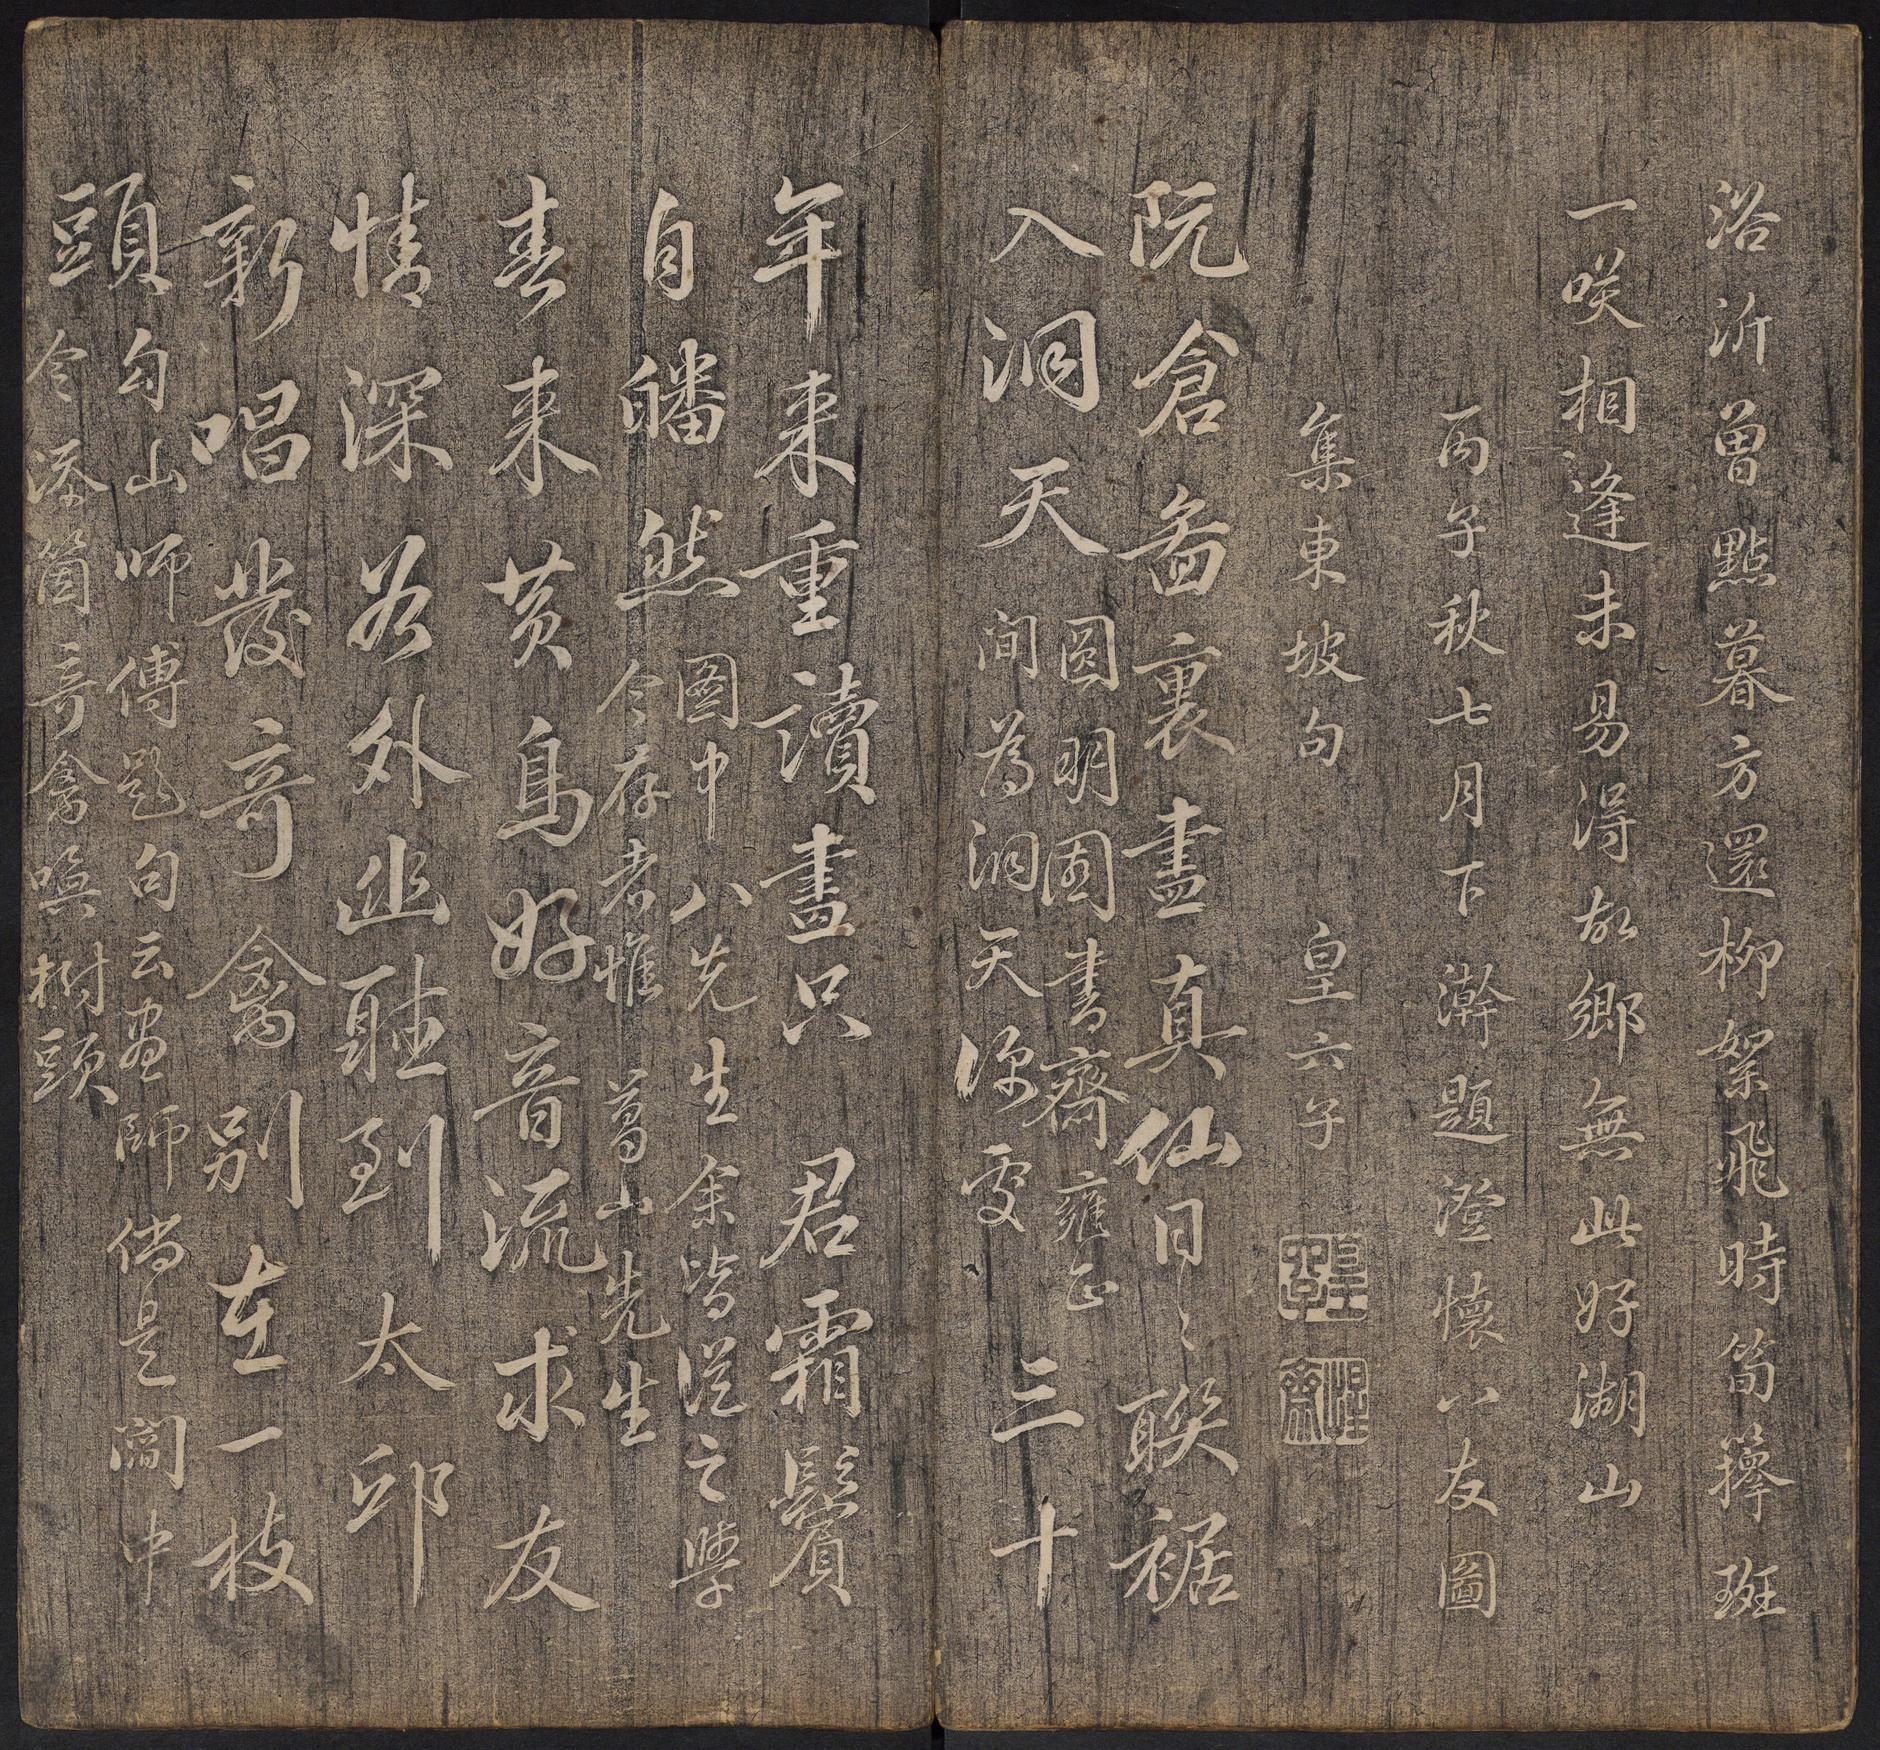 浴沂曾點暮方還柳絮飛時筍籜斑
一咲相逢未易得故鄉無此好湖山
丙子秋七月下澣題澄懷八友圖
集東坡句　皇六子
皇六子
澄齋
阮倉畵裏盡真仙日〻聯裾
入洞天
圓明園書齋雍正
間為洞天深處
三十
年来重讀畫只　君霜鬢
自皤然
圖中八先生余皆從之學
今存者惟　葛山先生
春来黄鳥好音流求友
情深谷外幽聽到太邱
新唱發奇禽別在一枝
頭
勾山師傅題句云畫師倘是閬中
令添箇奇禽喚樹頭